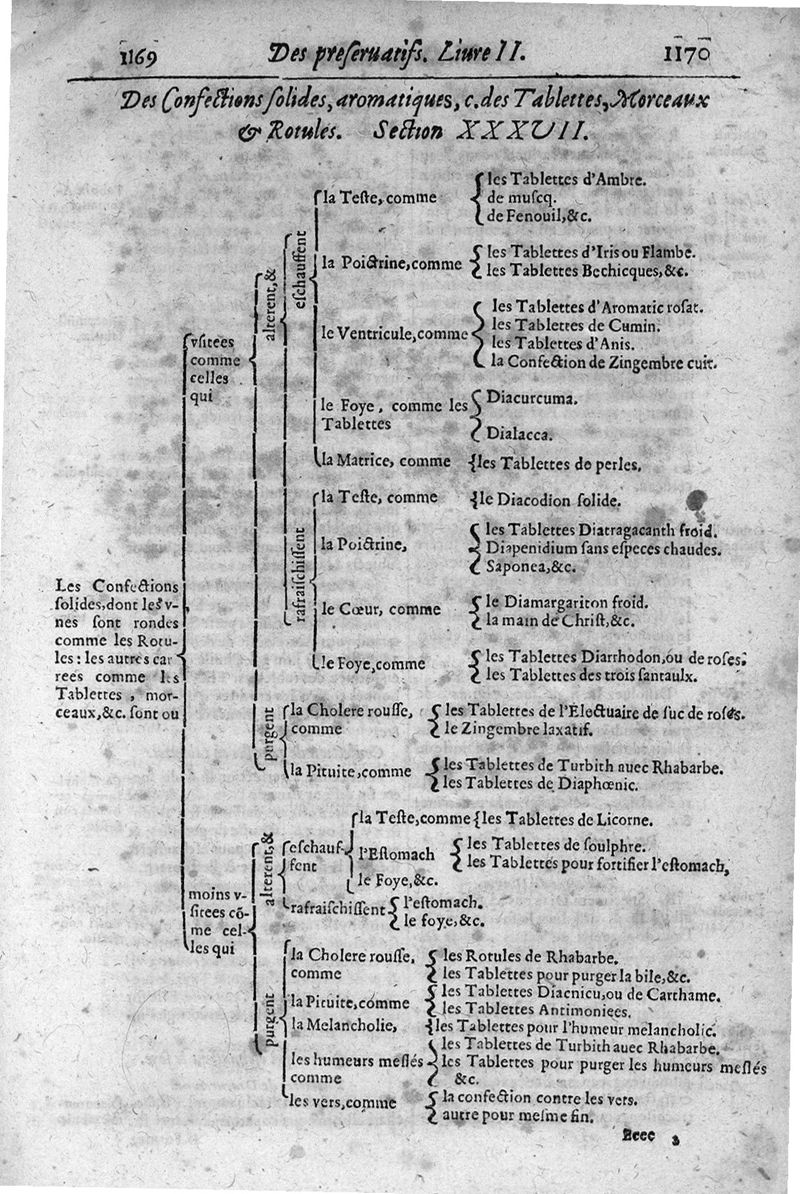 1169 Des preſeruatifs. Liure II. 1170
Des Confections ſolides, aromatiques, c. des Tablettes, Morceaux
& Rotules. Section XXXVII.
Les Confections
ſolides, dont les v-
nes ſont rondes
comme les Rotu-
les : les autres car
rees comme les
Tablettes, mor-
ceaux, &c. ſont ou
vſitees
comme
celles
qui
alterent, &
eſchauffent
la Teſte, comme
les Tablettes d'Ambre.
de muſcq.
de Fenouil, &c.
la Poictrine, comme
les Tablettes d'Iris ou Flambe.
les Tablettes Bechicques, &c.
le Ventricule, comme
les Tablettes d'Aromatic roſat.
les Tablettes de Cumin.
les Tablettes d'Anis.
la Confection de Zingembre cuit.
le Foye, comme les
Tablettes
Diacurcuma.
Dialacca.
la Matrice, comme
les Tablettes de perles.
rafraiſchiſſent
la Teſte, comme
le Diacodion ſolide.
la Poictrine,
les Tablettes Diatragacanth froid.
Diapenidium ſans eſpeces chaudes.
Saponea, &c.
le Cœur, comme
le Diamargariton froid.
la main de Chriſt, &c.
le Foye, comme
les Tablettes Diarrhodon, ou de roſes.
les Tablettes des trois ſantaulx.
purgent
la Cholere rouſſe,
comme
les Tablettes de l'Électuaire de ſuc de roſes.
le Zingembre laxatif.
la Pituite, comme
les Tablettes de Turbith auec Rhabarbe.
les Tablettes de Diaphœnic.
moins v-
ſitees cõ-
me cel-
les qui
alterent, &
eſchauf-
fent
la Teſte, comme
les Tablettes de Licorne.
l'Eſtomach
les Tablettes de ſoulphre.
les Tablettes pour fortifier l'eſtomach,
le Foye, &c.
rafraiſchiſſent
l'eſtomach.
le foye, &c.
purgent
la Cholere rouſſe,
comme
les Rotules de Rhabarbe.
les Tablettes pour purger la bile, &c.
la Pituite, comme
les Tablettes Diacnicu, ou de Carthame.
les Tablettes Antimoniees.
la Melancholie,
les Tablettes pour l'humeur melancholic.
les humeurs meſlés
comme
les Tablettes de Turbith auec Rhabarbe.
les Tablettes pour purger les humeurs meſlés
&c.
les vers, comme
la confection contre les vers.
autre pour meſme fin.
Eeee 3